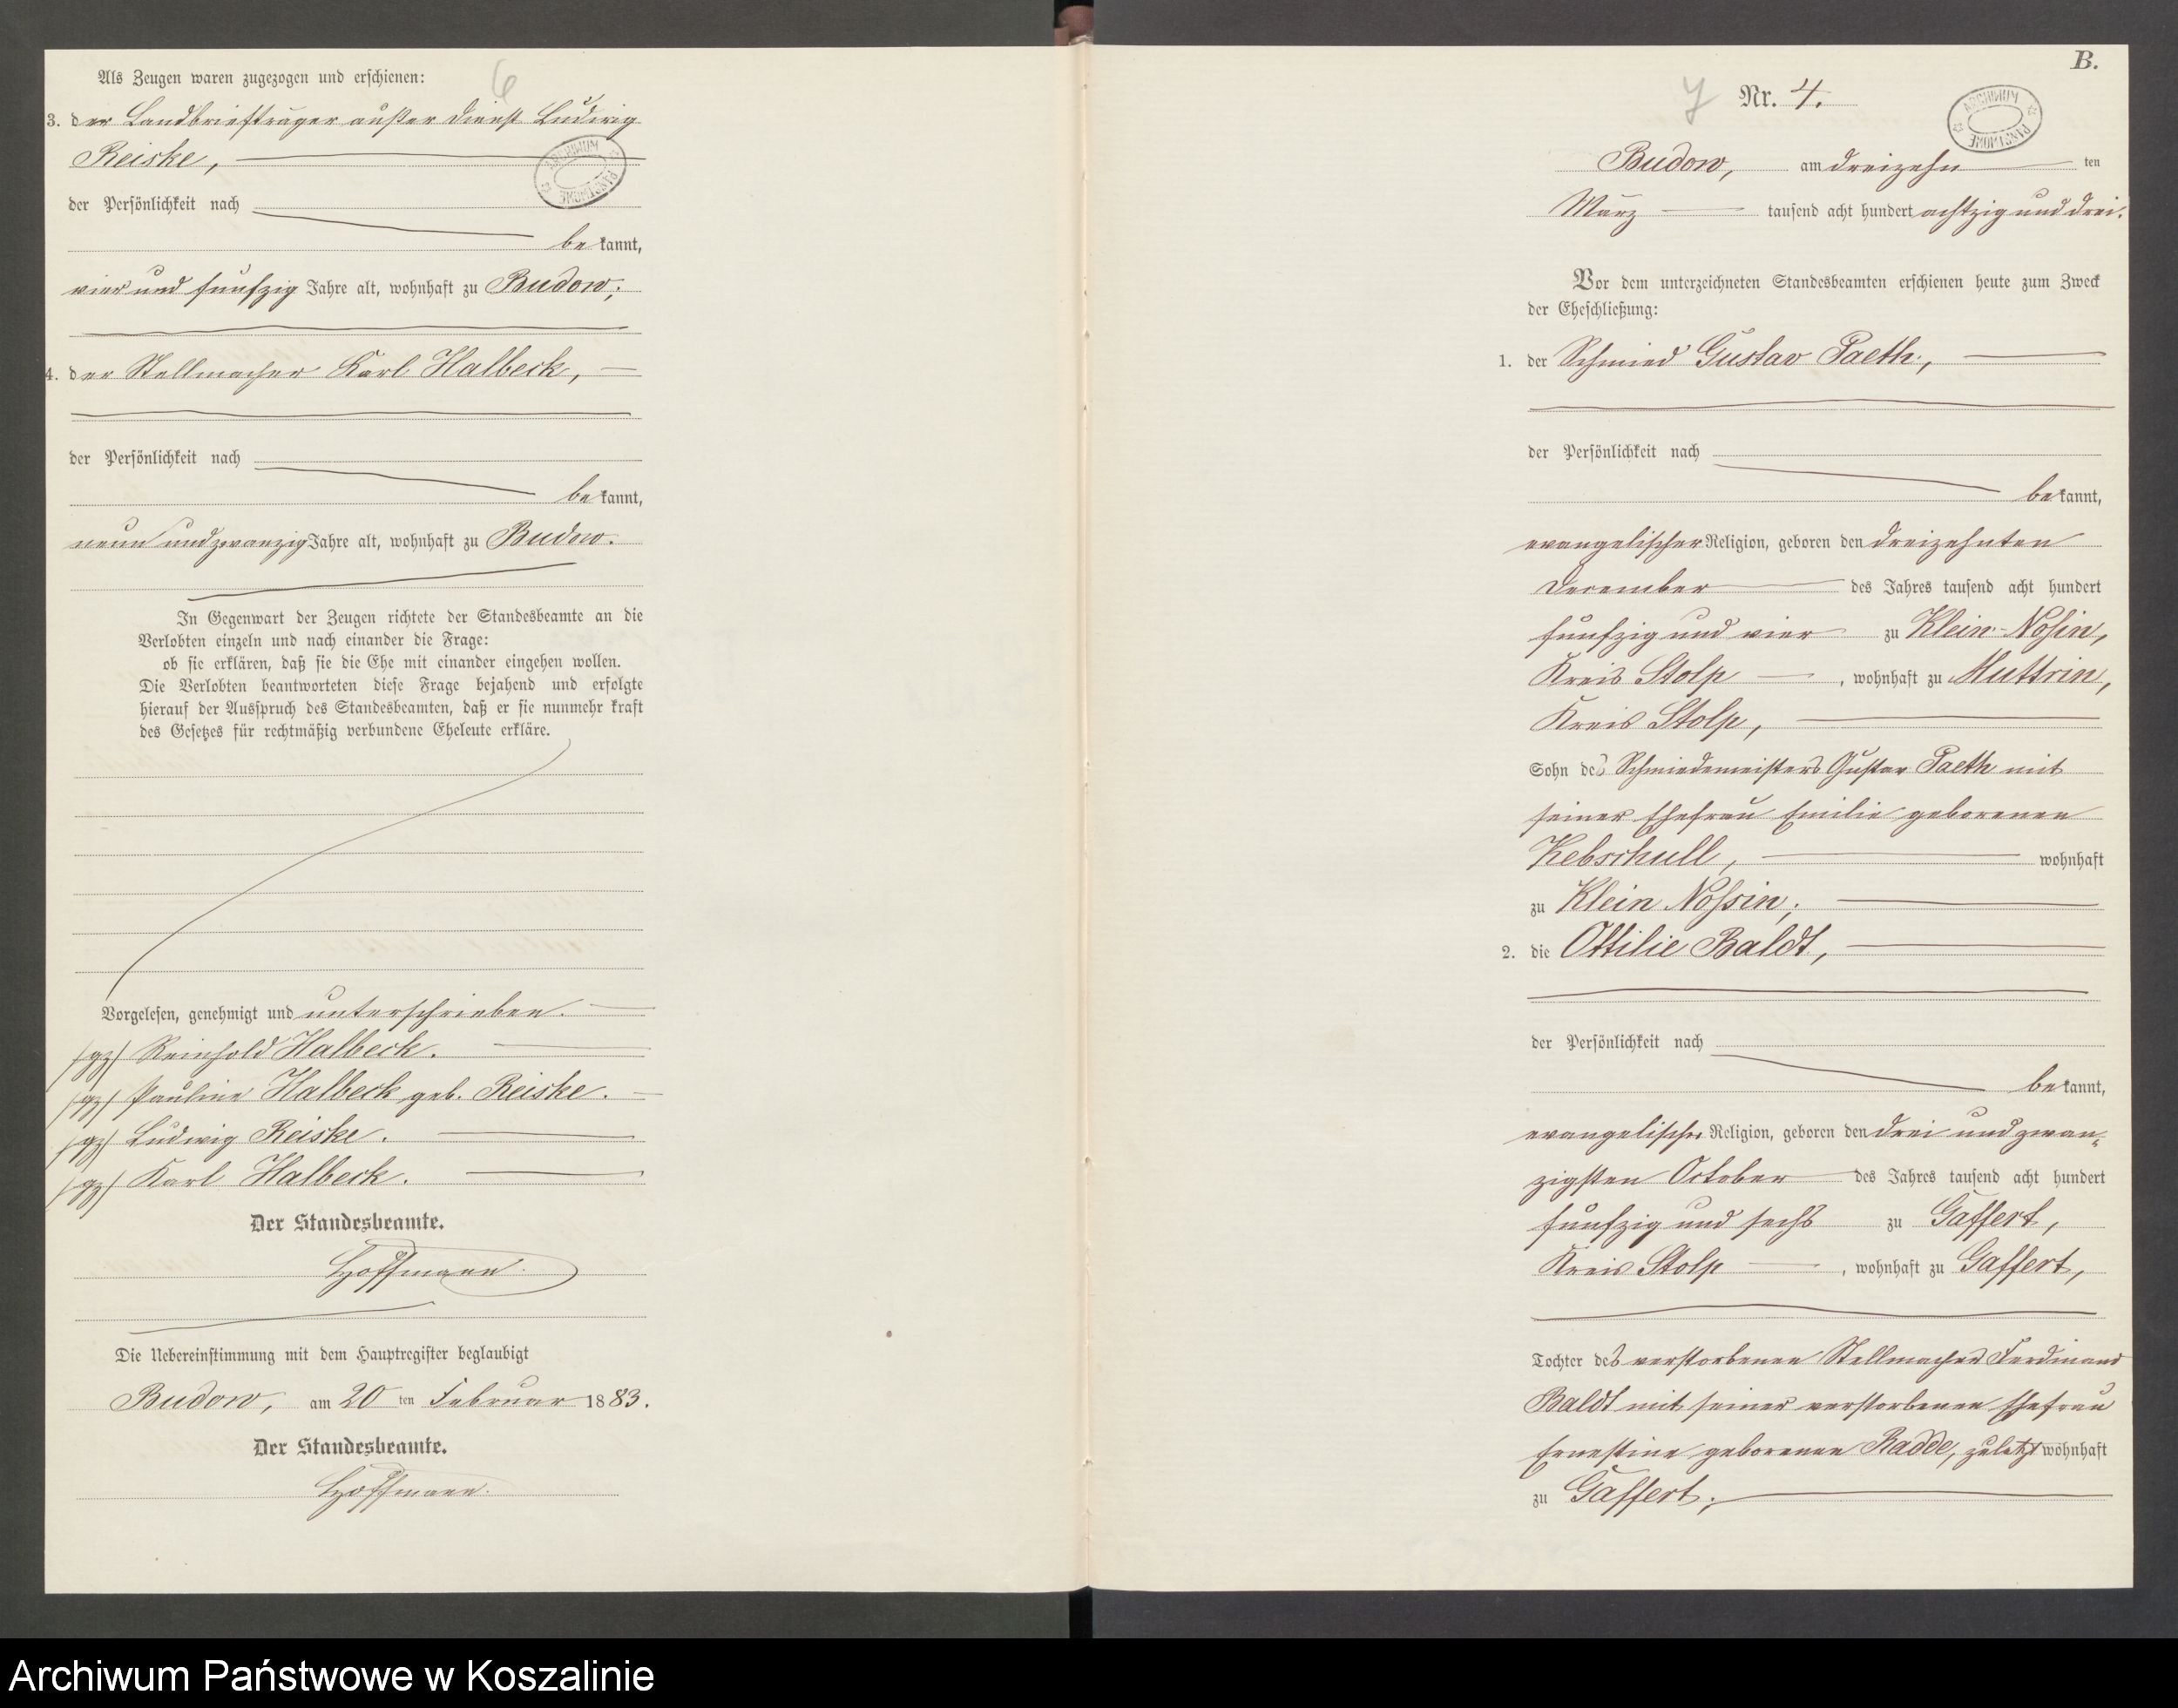 Als Zeugen waren zugezogen und erschienen:
6
3. der Landbriefträger außer Dienst Ludwig
Reiske,
der Persönlichkeit nach
be kannt,
vier und fünfzig Jahre alt, wohnhaft zu Budow;
4. der Stellmacher Karl Halbeck,
der Persönlichkeit nach
be kannt,
neun und zwanzig Jahre alt, wohnhaft zu Budow.
In Gegenwart der Zeugen richtete der Standesbeamte an die
Verlobten einzeln und nach einander die Frage:
ob sie erklären, daß sie die Ehe mit einander eingehen wollen.
Die Verlobten beantworteten diese Frage bejahend und erfolgte
hierauf der Ausspruch des Standesbeamten, daß er sie nunmehr kraft
des Gesetzes für rechtmäßig verbundene Eheleute erkläre.
Vorgelesen, genehmigt und unterschrieben.
(gz) Reinhold Halbeck.
(gz) Pauline Halbeck geb. Reiske.
(gz) Ludwig Reiske.
(gz) Karl Halbeck.
Der Standesbeamte.
Hoffmann.
Die Uebereinstimmung mit dem Hauptregister beglaubigt
Budow, am 20 ten Februar 1883.
Der Standesbeamte.
Hoffmann.
ARCHIWUM PAŃSTWOWE
B.
7 Nr. 4.
ARCHIWUM PAŃSTWOWE
Budow, am dreizehn ten
März tausend acht hundert achtzig und drei.
Vor dem unterzeichneten Standesbeamten erschienen heute zum Zweck
der Eheschließung:
1. der Schmied Gustav Paeth,
der Persönlichkeit nach
be kannt,
evangelischer Religion, geboren den dreizehnten
December des Jahres tausend acht hundert
fünfzig und vier zu Klein-Nossin,
Kreis Stolp, wohnhaft zu Muttrin,
Kreis Stolp,
Sohn des Schmiedemeisters Gustav Paeth mit
seiner Ehefrau Emilie geborenen
Kebschull, wohnhaft
zu Klein Nossin;
2. die Ottilie Baldt,
der Persönlichkeit nach
be kannt,
evangelischer Religion, geboren den drei und zwan-
zigsten October des Jahres tausend acht hundert
fünfzig und sechs zu Gaffert,
Kreis Stolp, wohnhaft zu Gaffert,
Tochter des verstorbenen Stellmacher Ferdinand
Baldt mit seiner verstorbenen Ehefrau
Ernestine geborenen Radde, zuletzt wohnhaft
zu Gaffert;
Archiwum Państwowe w Koszalinie